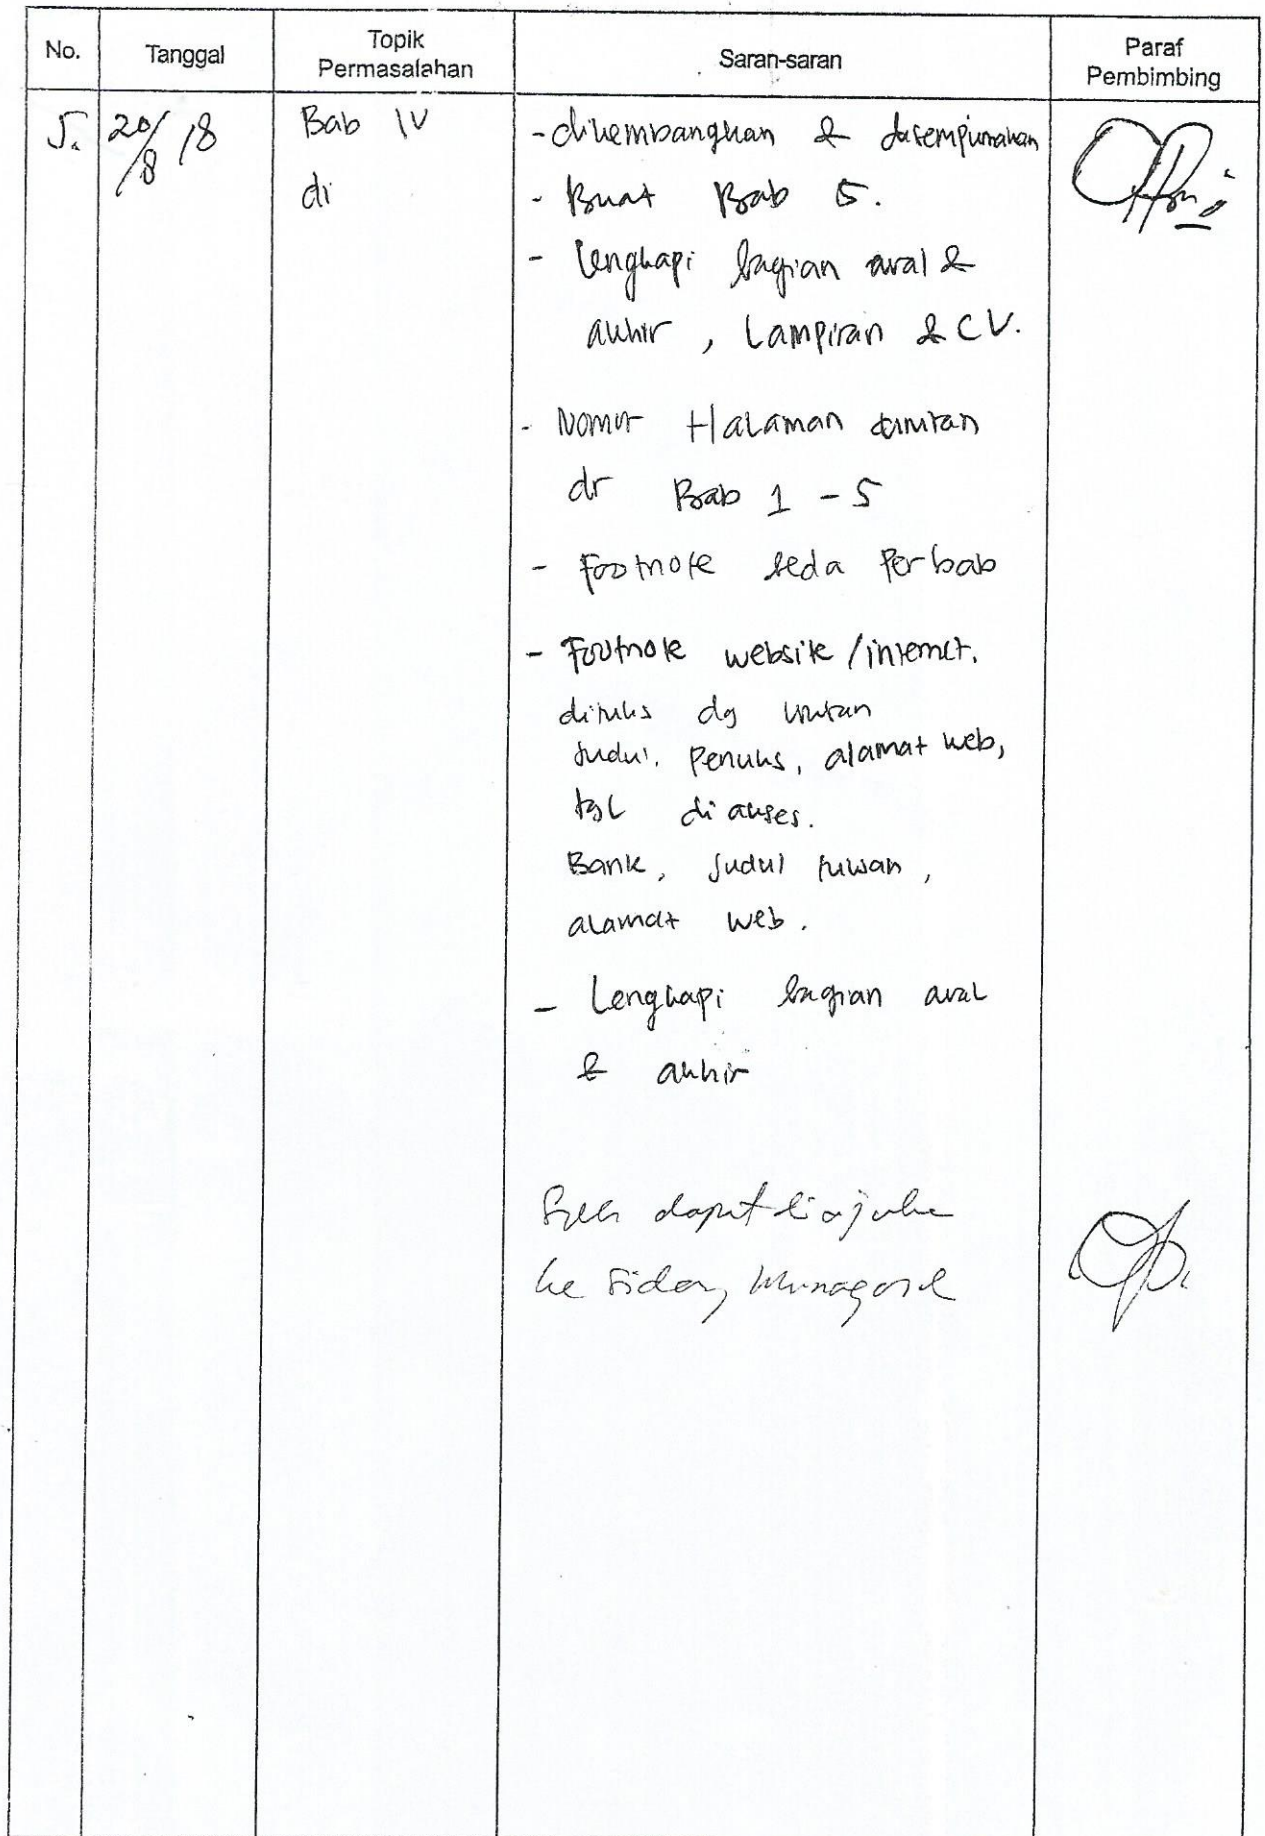 No. Tanggal Topik Permasalahan Saran-saran Paraf Pembimbing
5. 20/8/18 Bab IV - dikembangkan & disempurnakan
di - Buat Bab 5.
- Lengkapi bagian awal &
akhir, Lampiran & CV.
- Nomor Halaman urutan
dr Bab 1 - 5
- Footnote beda Perbab
- Footnote website/internet.
ditulis dg urutan
Judul. Penulis, alamat web,
tgl diakses.
Bank, Judul tulisan,
alamat web.
- Lengkapi bagian awal
& akhir
dapat diajukan
ke Sidang Munaqasah